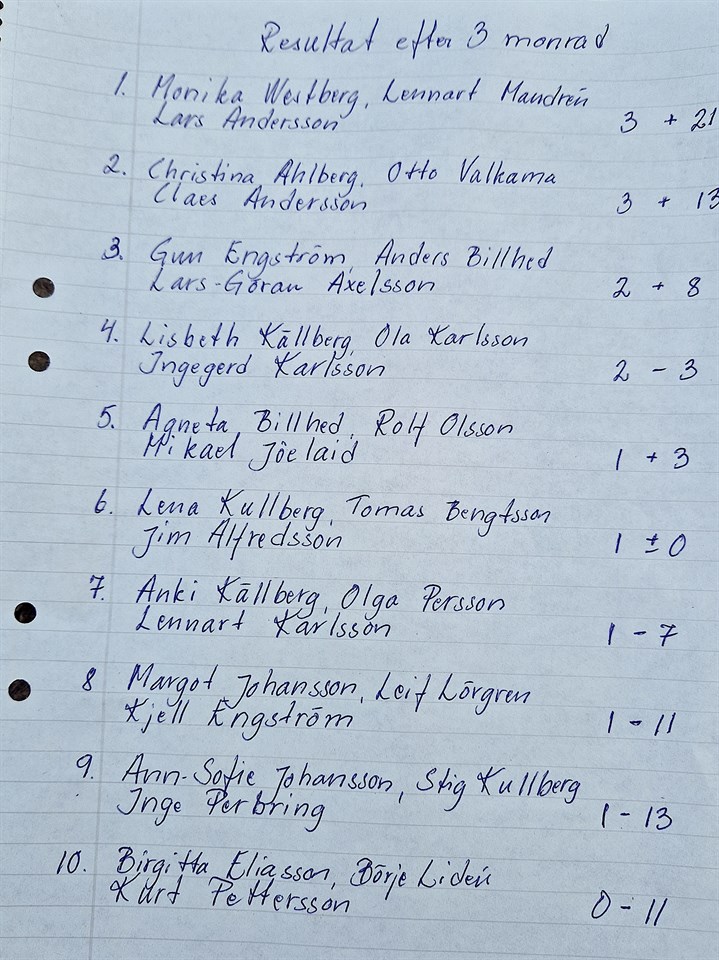 Resultat efter 3 monrad
1. Monika Westberg, Lennart Mandrén
Lars Andersson 3 + 21
2. Christina Ahlberg, Otto Valkama
Claes Andersson 3 + 13
3. Gun Engström, Anders Billhed
Lars-Göran Axelsson 2 + 8
4. Lisbeth Källberg, Ola Karlsson
Ingegerd Karlsson 2 - 3
5. Agneta Billhed, Rolf Olsson
Mikael Jõelaid 1 + 3
6. Lena Kullberg, Tomas Bengtsson
Jim Alfredsson 1 ± 0
7. Anki Källberg, Olga Persson
Lennart Karlsson 1 - 7
8 Margot Johansson, Leif Lörgren
Kjell Engström 1 - 11
9. Ann-Sofie Johansson, Stig Kullberg
Inge Perbring 1 - 13
10. Birgitta Eliasson, Börje Lidén
Kurt Pettersson 0 - 11